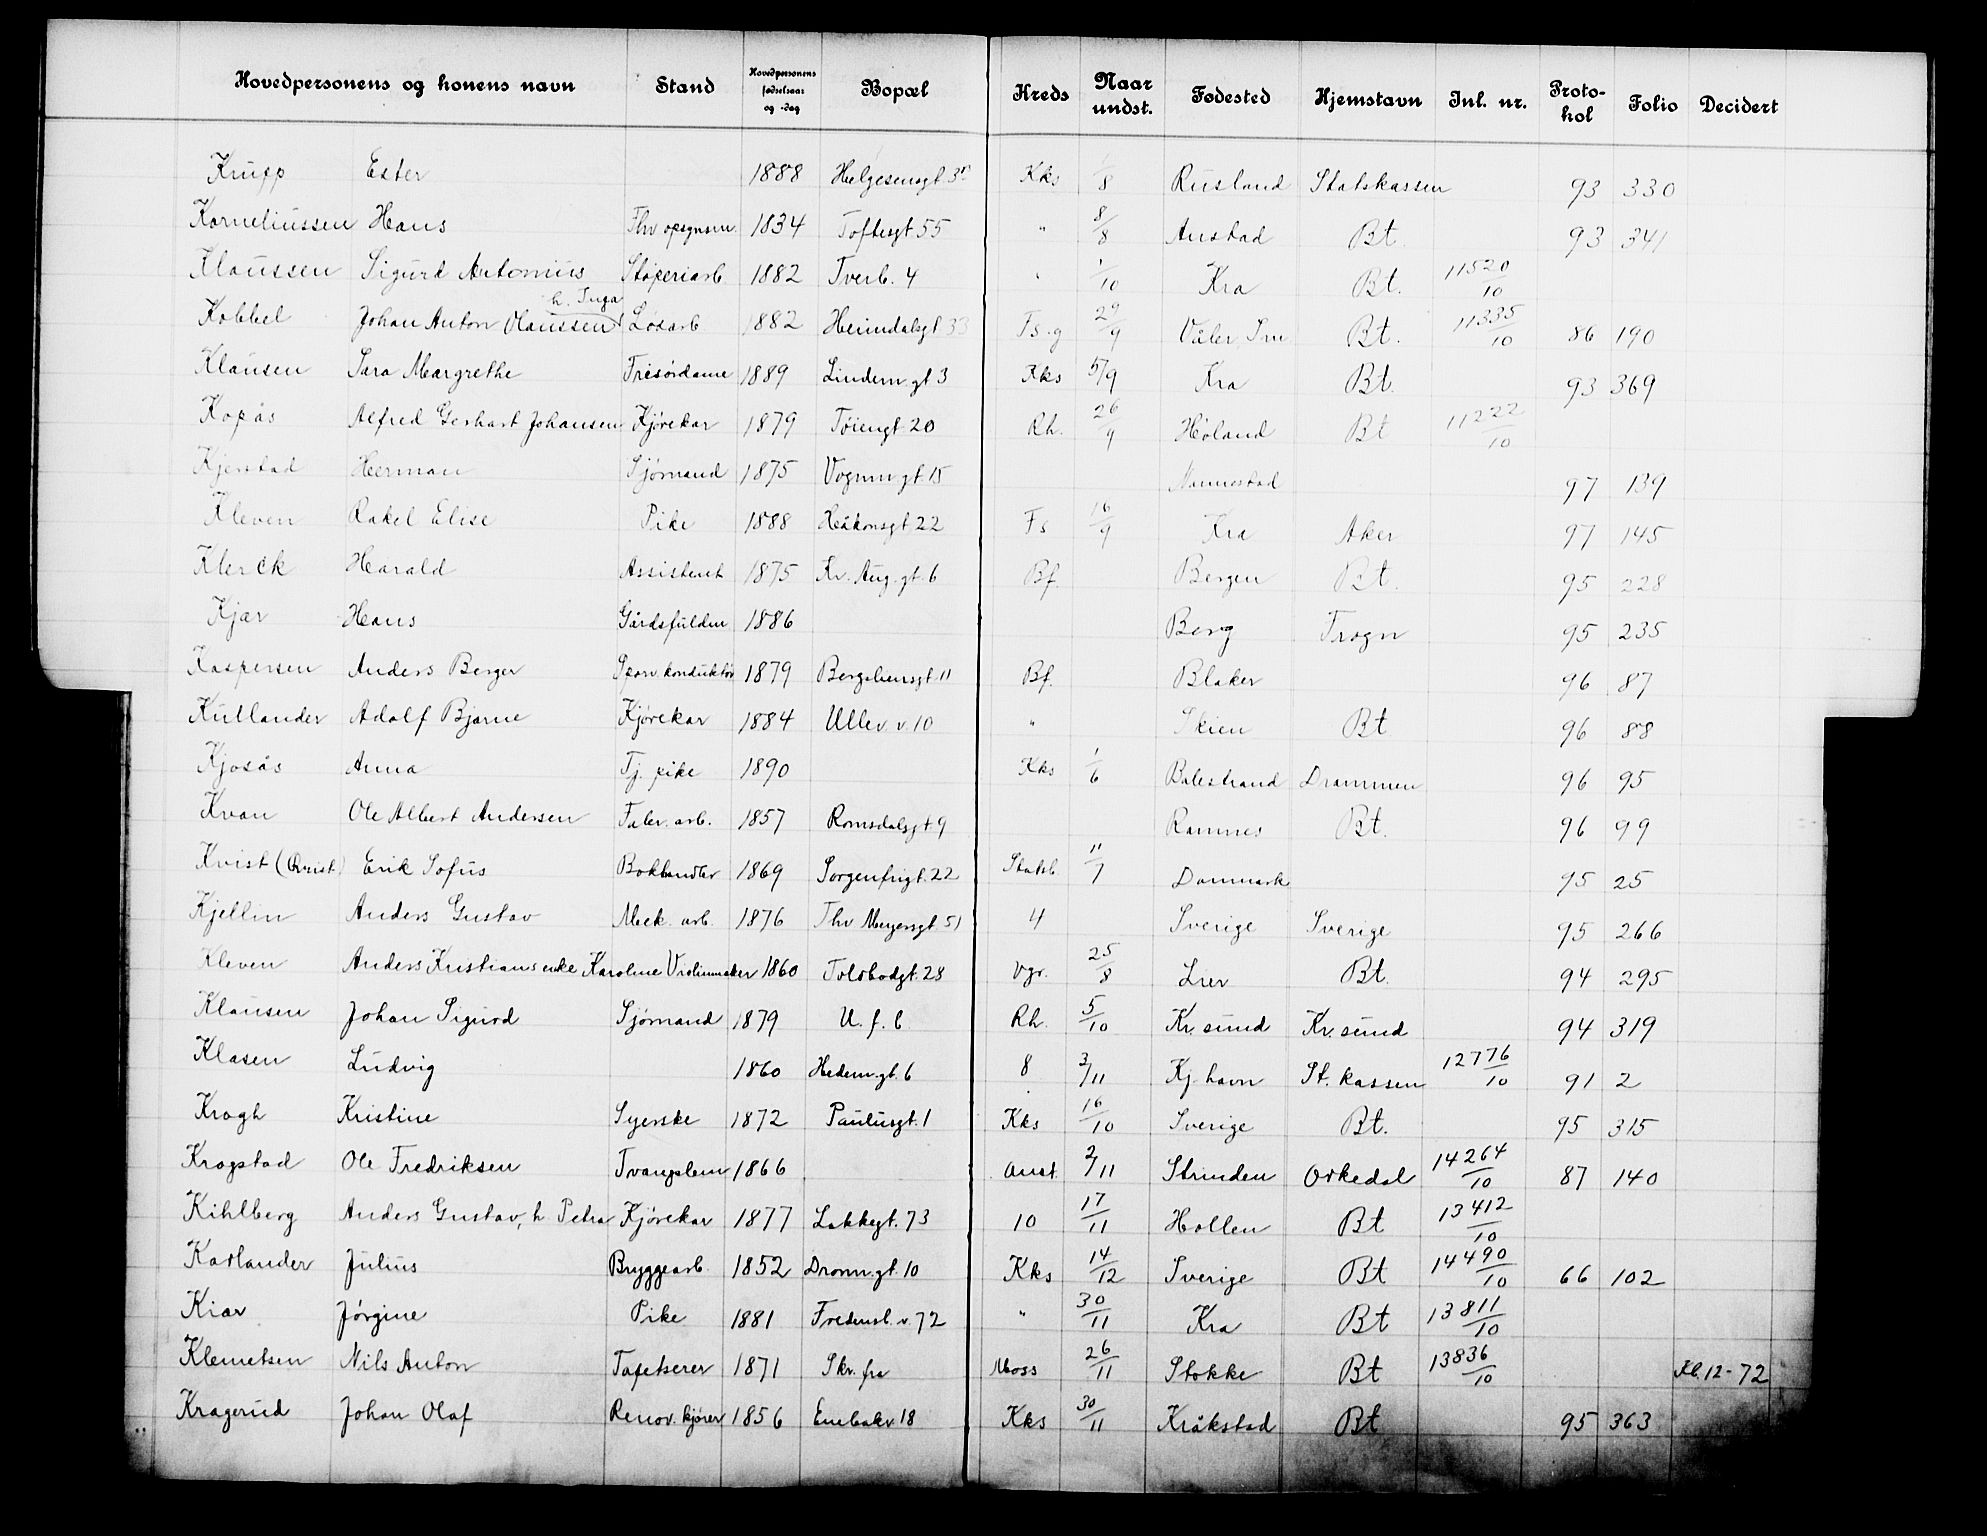 Hovedpersonens og konens navn Stand Hovedpersonens fødselsaar og -dag Bopæl Kreds Naar undst. Fødested Hjemstavn Inl. nr. Protokol Folio Decidert
Krupp Ester 1888 Helgesensgt. Kks 1/8 Rusland Statskassen 93 330
Korneliussen Hans Fhv opsynsm. 1834 Toftesgt 55 " 8/8 Anstad Bt. 93 341
Klaussen Sigurd Antonius Støperiarb 1882 Tverb. 4 " 1/10 Kra Bt. 11520/10
h. Inga
Kobbel Johan Anton Olaussen Løsarb 1882 Heimdalsgt 33 Fs.g 29/9 Våler, Sm Bt. 11335/10 86 190
Klausen Sara Margrethe Frisørdame 1889 Lindem.gt 3 Kks 5/9 Kra Bt. 93 369
Kopås Alfred Gerhart Johansen Kjørekar 1879 Tøiengt 20 Rh. 26/9 Høland Bt 11222/10
Kjerstad Herman Sjømand 1875 Vognm.gt. 15 Nannestad 97 139
Kleven Rakel Elise Pike 1888 Håkonsgt 22 Fs 16/9 Kra Aker 97 145
Klerck Harald Assistent 1875 Kr. Aug. gt. 6 Bf. Bergen Bt. 95 228
Kjær Hans Gårdsfuldm. 1886 Berg Trogn 95 235
Kaspersen Anders Berger Sporv. konduktør 1879 Bergsliensgt. 11 Bf. Blaker 96 87
Kullander Adolf Bjarne Kjørekar 1884 Ullev. v. 10 " Skien Bt 96 88
Kjosås Anna Tj. pike 1890 Kks 1/6 Balestrand Drammen 96 95
Kvan Ole Albert Andersen Fabr. arb. 1857 Romsdalsgt. 9 Ramnes Bt. 96 99
Kvist (Qvist) Erik Sofus Bokhandler 1869 Sorgenfrigt. 22 Statsb. 11/7 Danmark 95 25
Kjellin Anders Gustav Mek. arb. 1876 Thv Meyersgt. 51 4 Sverige Sverige 95 266
Kleven Anders Kristians enke Karoline Violinmaker 1860 Tolbodgt. 28 Vgr. 25/8 Lier Bt. 94 295
Klausen Johan Sigurd Sjømand 1879 U. f. b Rh. 5/10 Kr. sund Kr. sund 94 319
Klasen Ludvig 1860 Hedem.gt. 6 8 3/11 Kj. havn St. kassen 12776/10 91 2
Krogh Kristine Syerske 1872 Paulusgt. 1 Kks 16/10 Sverige Bt. 95 315
Krogstad Ole Fredriksen Tvangslem 1866 Anst. 2/11 Strinden Orkedal 14264/10 87 140
Kihlberg Anders Gustav, h. Petra Kjørekar 1877 Lakkegt. 73 10 17/11 Hollen Bt 13412/10
Karlander Julius Bryggearb. 1852 Dronn.gt. 10 Kks 14/12 Sverige Bt 14490/10 66 102
Kiær Jørgine Pike 1881 Fredensb. v. 72 " 30/11 Kra Bt 13811/10
Klemetsen Nils Anton Tapetserer 1871 Skr. fra Moss 26/11 Stokke Bt 13836/10 Kl. 12-72
Kragerud Johan Olaf Renov. kjører 1856 Enebakv. 18 Kks 30/11 Kråkstad Bt 95 363